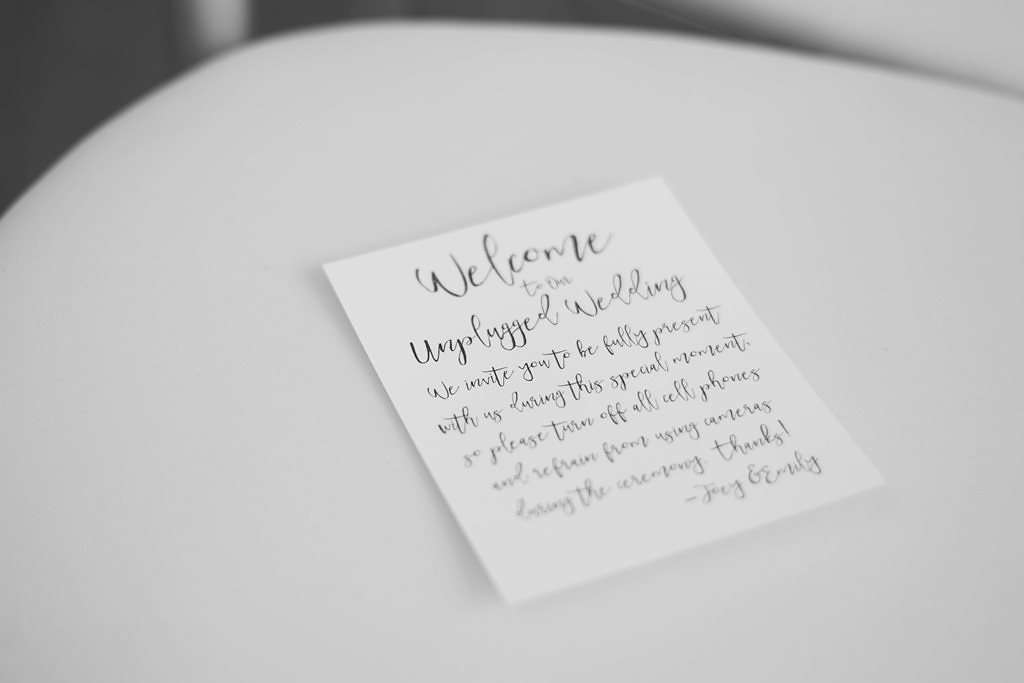 Welcome
to our
Unplugged Wedding
We invite you to be fully present
with us during this special moment,
so please turn off all cell phones
and refrain from using cameras
during the ceremony. Thanks!
- Joey & Emily